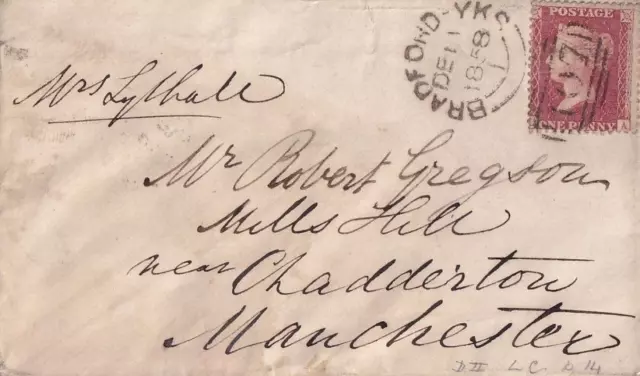 BRADFORD-YKS
DE 11
1858
POSTAGE
ONE PENNY
Mrs Lythall
Mr Robert Gregson
Mills Hill
near Chadderton
Manchester
D II L C D 14